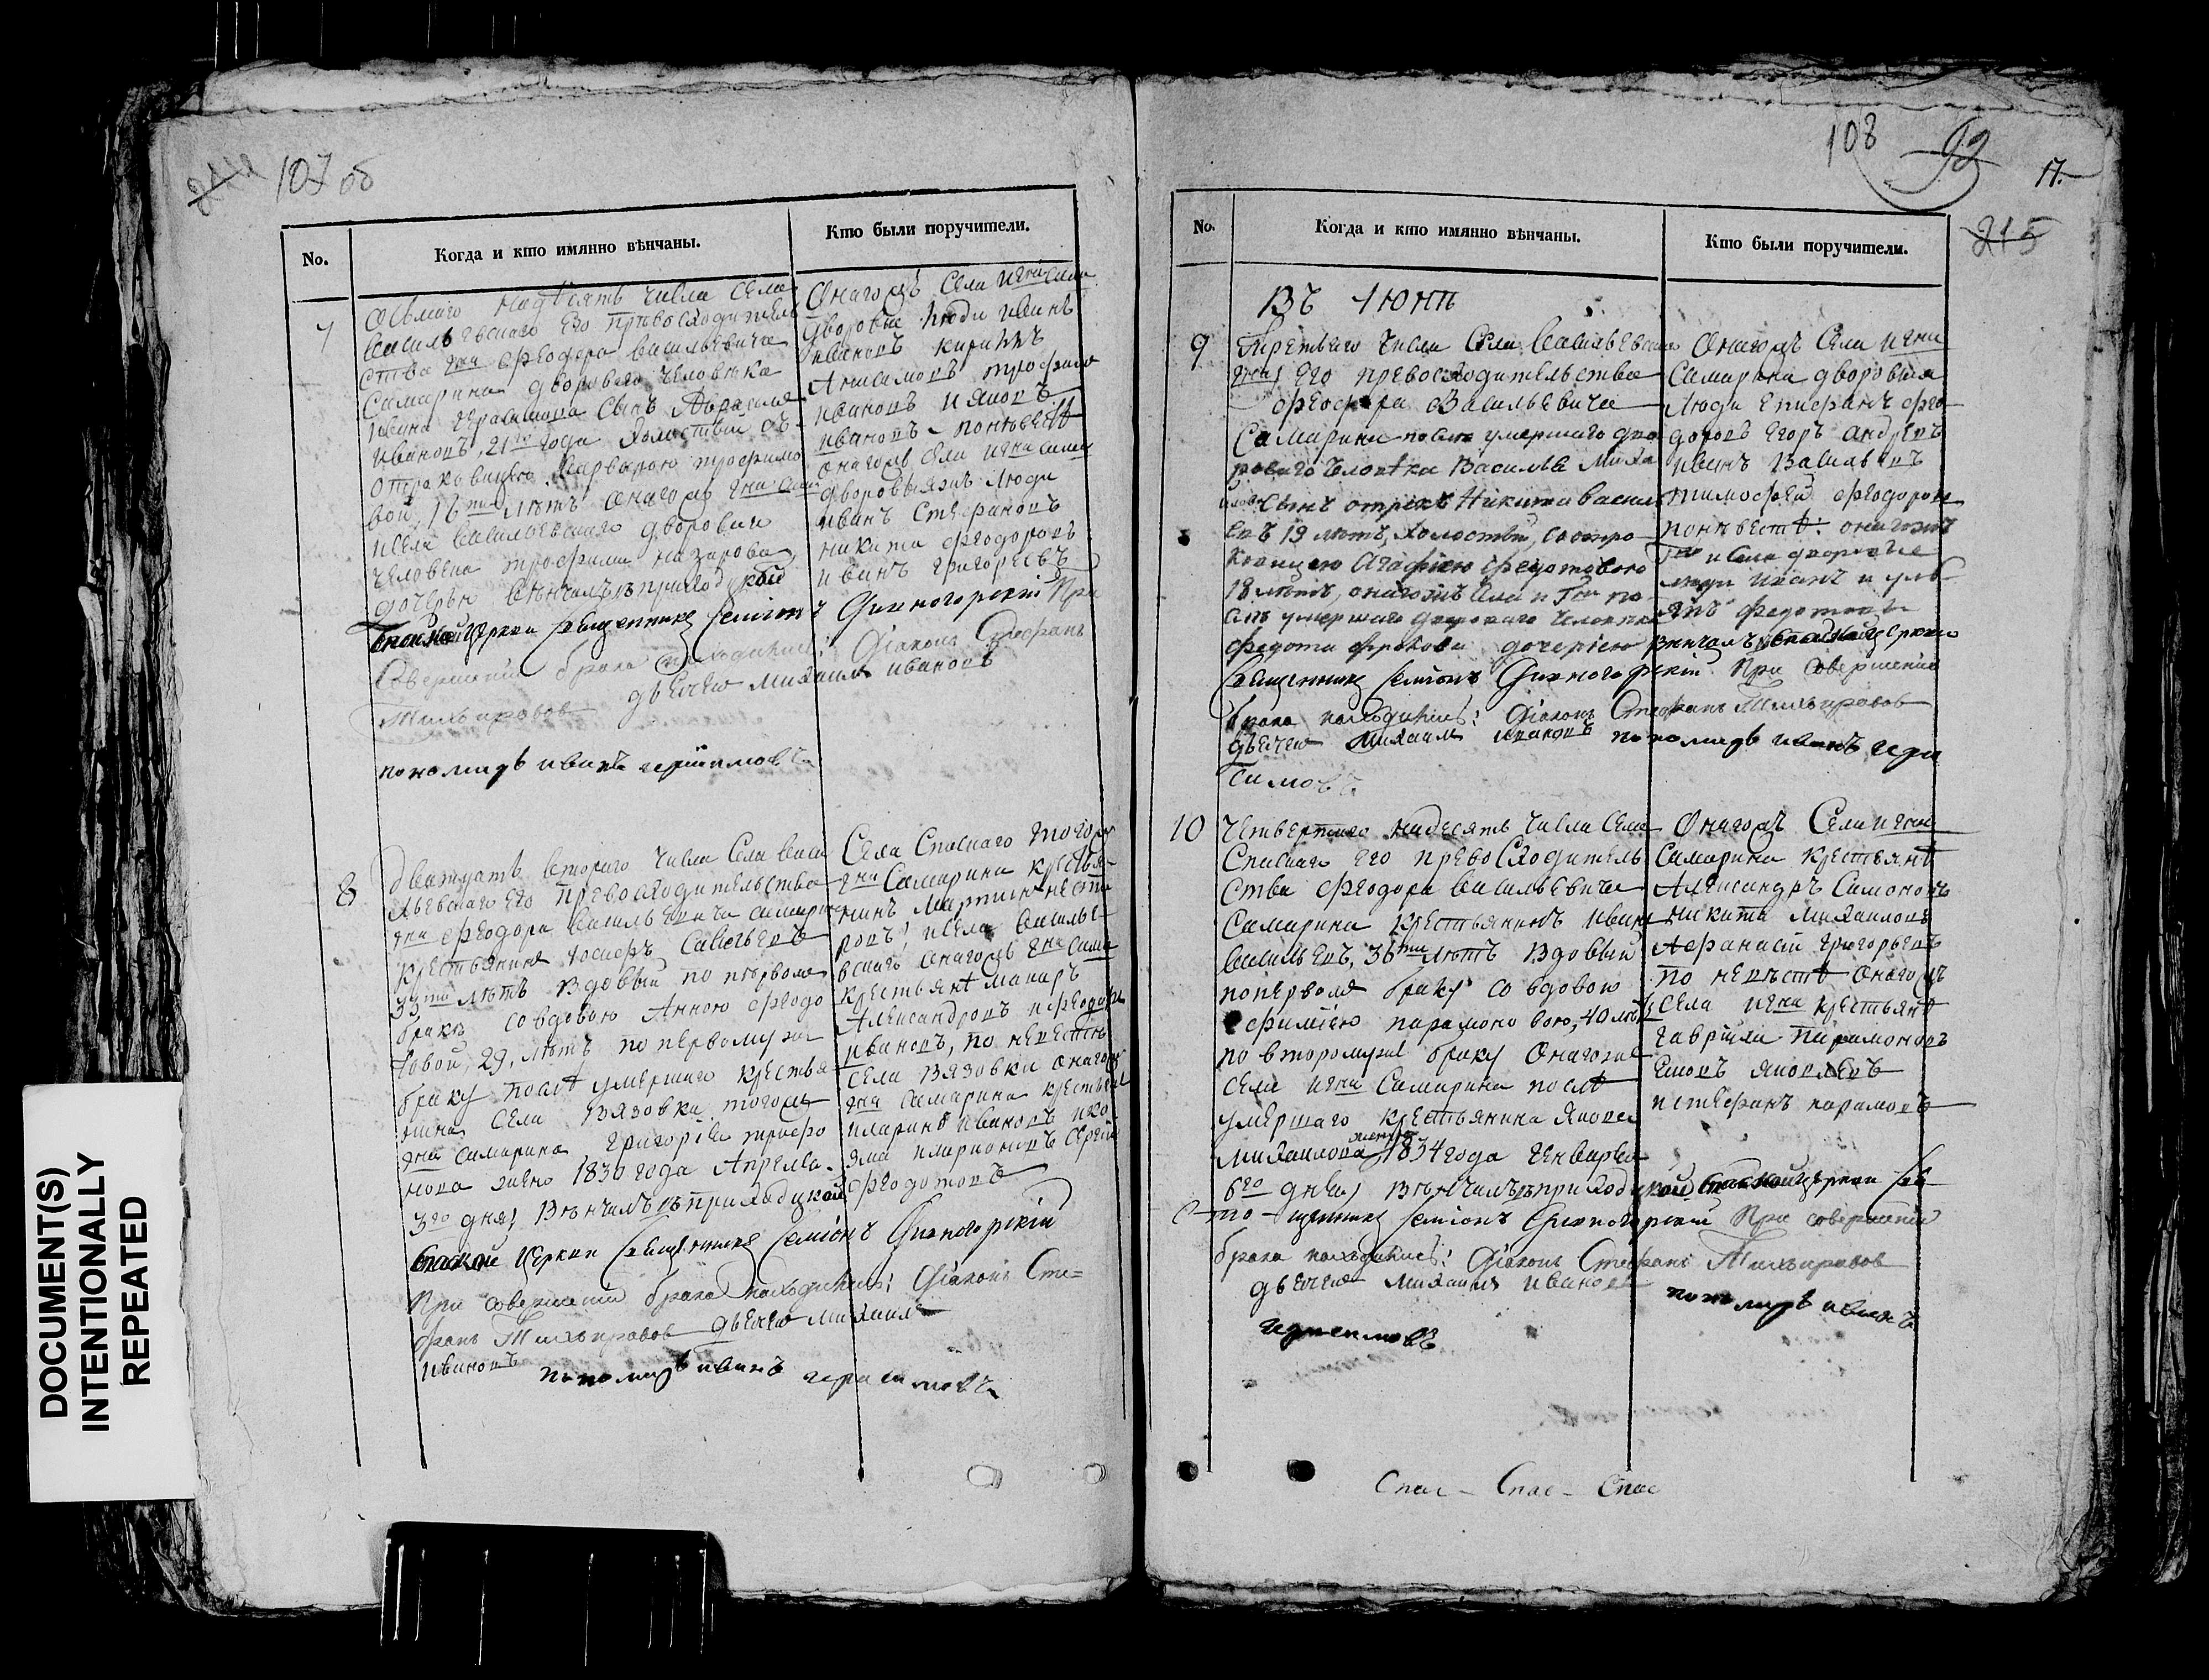 107 об
No.
Когда и кто имянно вѣнчаны.
Кто были поручители.
7
осьмаго надесять числа Села
Васильевскаго Его превосходитель
ства гна Феодора Васильевича
Самарина двороваго человѣка
Ивана Герасимова сынъ
Ивановъ, 21го года холостый съ
отроковицею трофимо
вой, 16ти лѣтъ онагожъ гна Сам
и села Васильевскаго двороваго
человѣка трофима назарова
дочерью вѣнчалъ въ приходской
Спаской Церкви Священникъ Семіонъ Дивногорскій При
Совершеніи брака находились: Діаконъ Стефанъ
Тихонравовъ дьячекъ Михаилъ Ивановъ
пономарь иванъ герасимовъ
Онагожъ Села и гна Сама
дворовые люди иванъ
ивановъ
трофимъ
ивановъ и яковъ
ивановъ - по невестѣ
онагожъ села и гна Сама
дворовыяжъ люди
иванъ Стефановъ
никита феодоровъ
иванъ григорьевъ
8
Двадцать втораго числа Села Васи
льевскаго Его превосходительства
гна Феодора Васильевича Самарина
крестьянинъ Іосифъ Савельевъ
33ти лѣтъ вдовый по первомъ
бракѣ со вдовою Анною феодо
товой, 29, лѣтъ по первомуже
браку послѣ умершаго крестья
нина Села Вязовки тогожъ
гна Самарина Григорія трофи
мова 1830 года Апреля
3го дня, Вѣнчалъ въ приходской
Спаской Церкви Священникъ Семіонъ Дивногорскій
При совершеніи брака находились: Діаконъ Сте=
фанъ Тихонравовъ дьячекъ Михаилъ
Ивановъ пономарь иванъ герасимовъ
Села Спаскаго тогожъ
гна Самарина крестья
нинъ Мартинъ
села Василье
вскаго онагожъ гна Сама
крестьянѣ
Александровъ и феодоръ
ивановъ, по невестѣ
Села Вязовки онагожъ
гна Самарина крестьяне
иларионъ ивановъ
иларионовъ Сергій
феодотовъ
108
92
17.
215
No.
Когда и кто имянно вѣнчаны.
Кто были поручители.
Въ Іюнѣ
9
Третьяго числа Села Васильевскаго
гна Его превосходительства
Феодора Васильевича
Самарина послѣ умершаго дво
роваго человѣка Василья Миха
илова сынъ отрокъ Никита Васил
евъ 19 лѣтъ, холостый, со отро
ковицею Агафіею Федотовою
18 лѣтъ, онагожъ Села и Гна по
слѣ умершаго двороваго человѣка
Федота дочерью вѣнчалъ Спаской церкви
Священникъ Семіонъ Дивногорскій При Совершеніи
брака находились: Діаконъ Стефанъ Тихонравовъ
дьячекъ Михаилъ Ивановъ пономарь иванъ гера
симовъ
Онагожъ Села и гна
Самарина дворовыя
люди Епифанъ фео
доровъ Егоръ Андреевъ
иванъ Васильевъ
тимофей феодоровъ
по невестѣ: онагожъ
Гна и Села дворовые
люди иванъ и уль
янъ Федотовы
10
Четвертаго надесять числа Села
Спаскаго Его превосходитель
ства Феодора Васильевича
Самарина крестьянинъ Иванъ
Васильевъ, 36ти лѣтъ вдовый
по первомъ браку со вдовою
ефиміею парамоновою, 40 лѣтъ
по второмуже браку Онагоже
села и гна Самарина послѣ
умершаго крестьянина Якова
Михаилова 1834 года Генваря
6го дня, Вѣнчалъ въ приходской Спаской церкви Св
щенникъ Семіонъ Дивногорскій При совершеніи
брака находились: Діаконъ Стефанъ Тихонравовъ
дьячекъ Михаилъ Ивановъ пономарь иванъ
герасимовъ
Онагожъ Села и гна
Самарина крестьянѣ
Александръ Симоновъ
никита михаиловъ
Афанасій григорьевъ
по невѣстѣ онагожъ
села и гна крестьянѣ
Гаврила Парамоновъ
яковлевъ
и Стефанъ парамовъ
Спас - Спас - Спас
DOCUMENT(S)
INTENTIONALLY
REPEATED